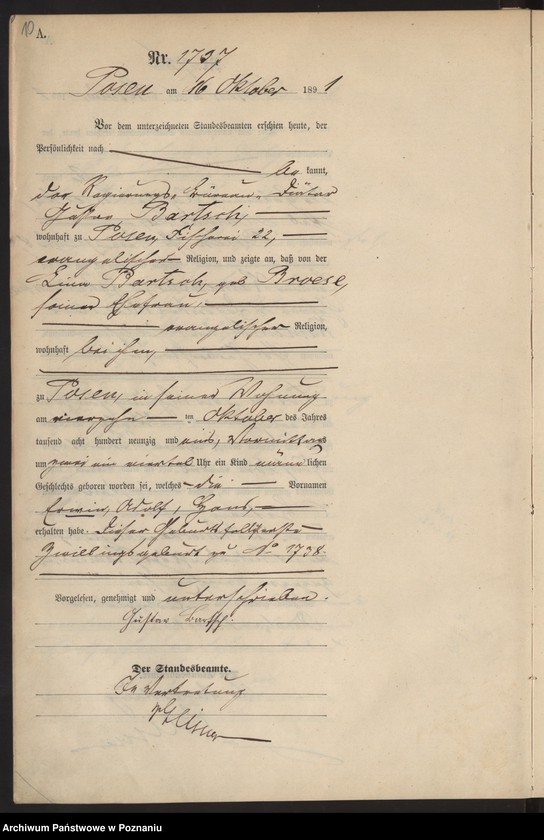 10
A.
Nr. 1737
Posen am 16 Oktober 1891
Vor dem unterzeichneten Standesbeamten erschien heute, der
Persönlichkeit nach
be kannt,
der Regierungs-Büreau-Diätar
Gustav Bartsch,
wohnhaft zu Posen, Fischerei 22,
evangelischer Religion, und zeigte an, daß von der
Bartsch, geb Broese,
seiner Ehefrau,
evangelischer Religion,
wohnhaft bei ihm,
zu Posen, in seiner Wohnung
am vierzehn ten Oktober des Jahres
tausend acht hundert neunzig und eins, Vormittags
um zwei ein viertel Uhr ein Kind männ lichen
Geschlechts geboren worden sei, welches die Vornamen
Erwin, Adolf, Hans,
erhalten habe. Dieser Geburtsfall erste
Zwillingsgeburt zu No 1738.
Vorgelesen, genehmigt und unterschrieben.
Gustav Bartsch.
Der Standesbeamte.
In Vertretung
Archiwum Państwowe w Poznaniu